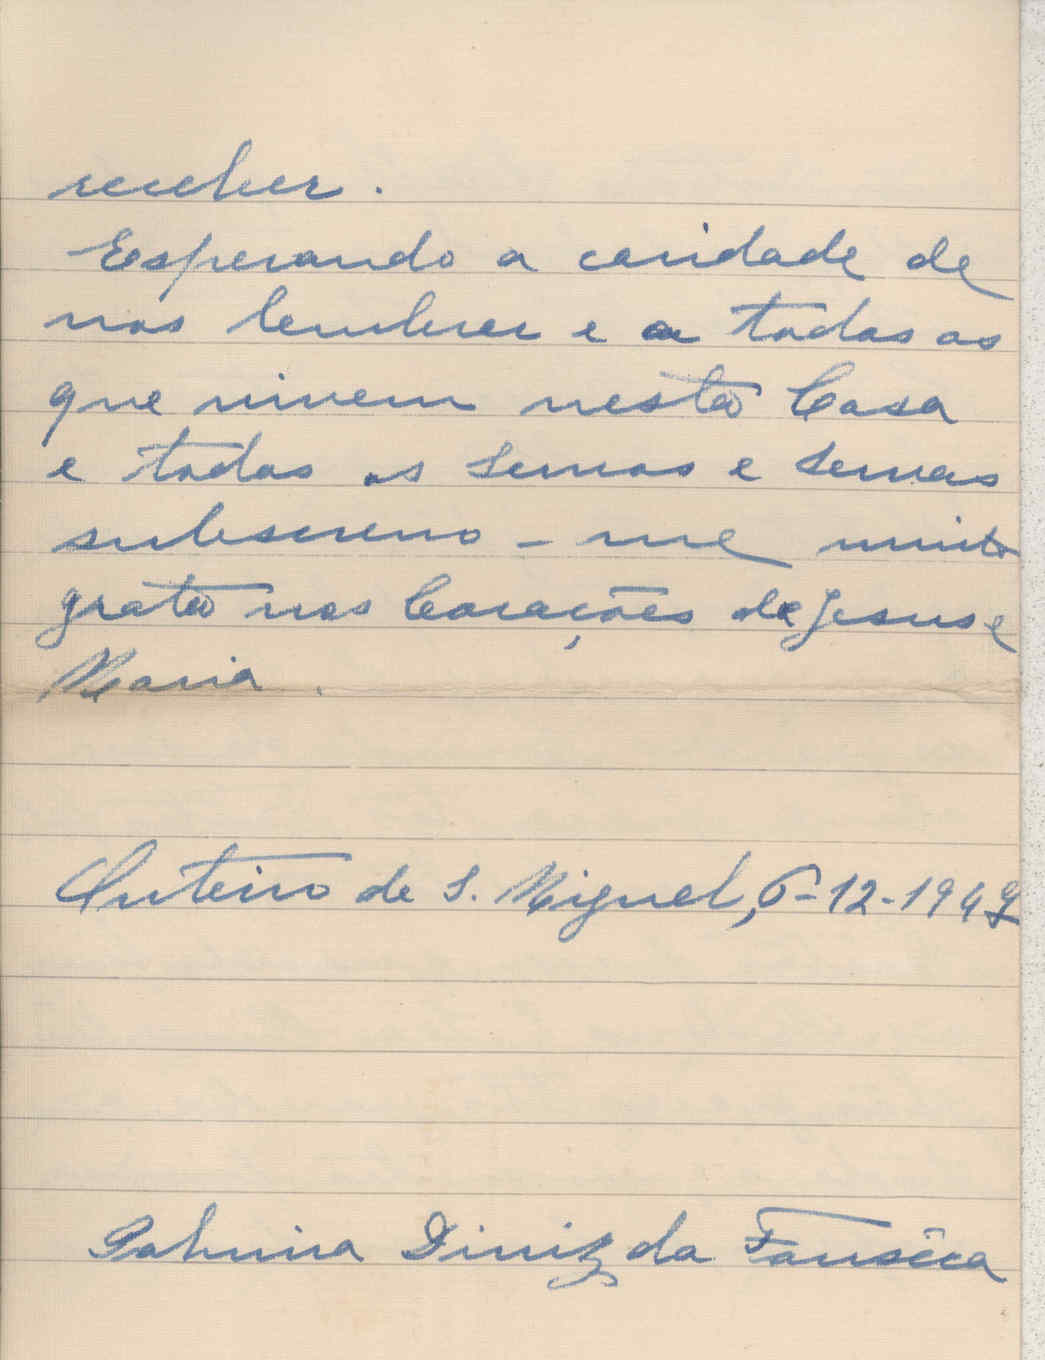 receber.
Esperando a caridade de
nos lembrar e a todos os
que vivem nesta Casa
e todos os Servos e Servas
subscrevo-me muito
grata nos Corações de Jesus e
Maria.
Outeiro de S. Miguel, 6-12-1949
Palmira Diniz da Fonsêca